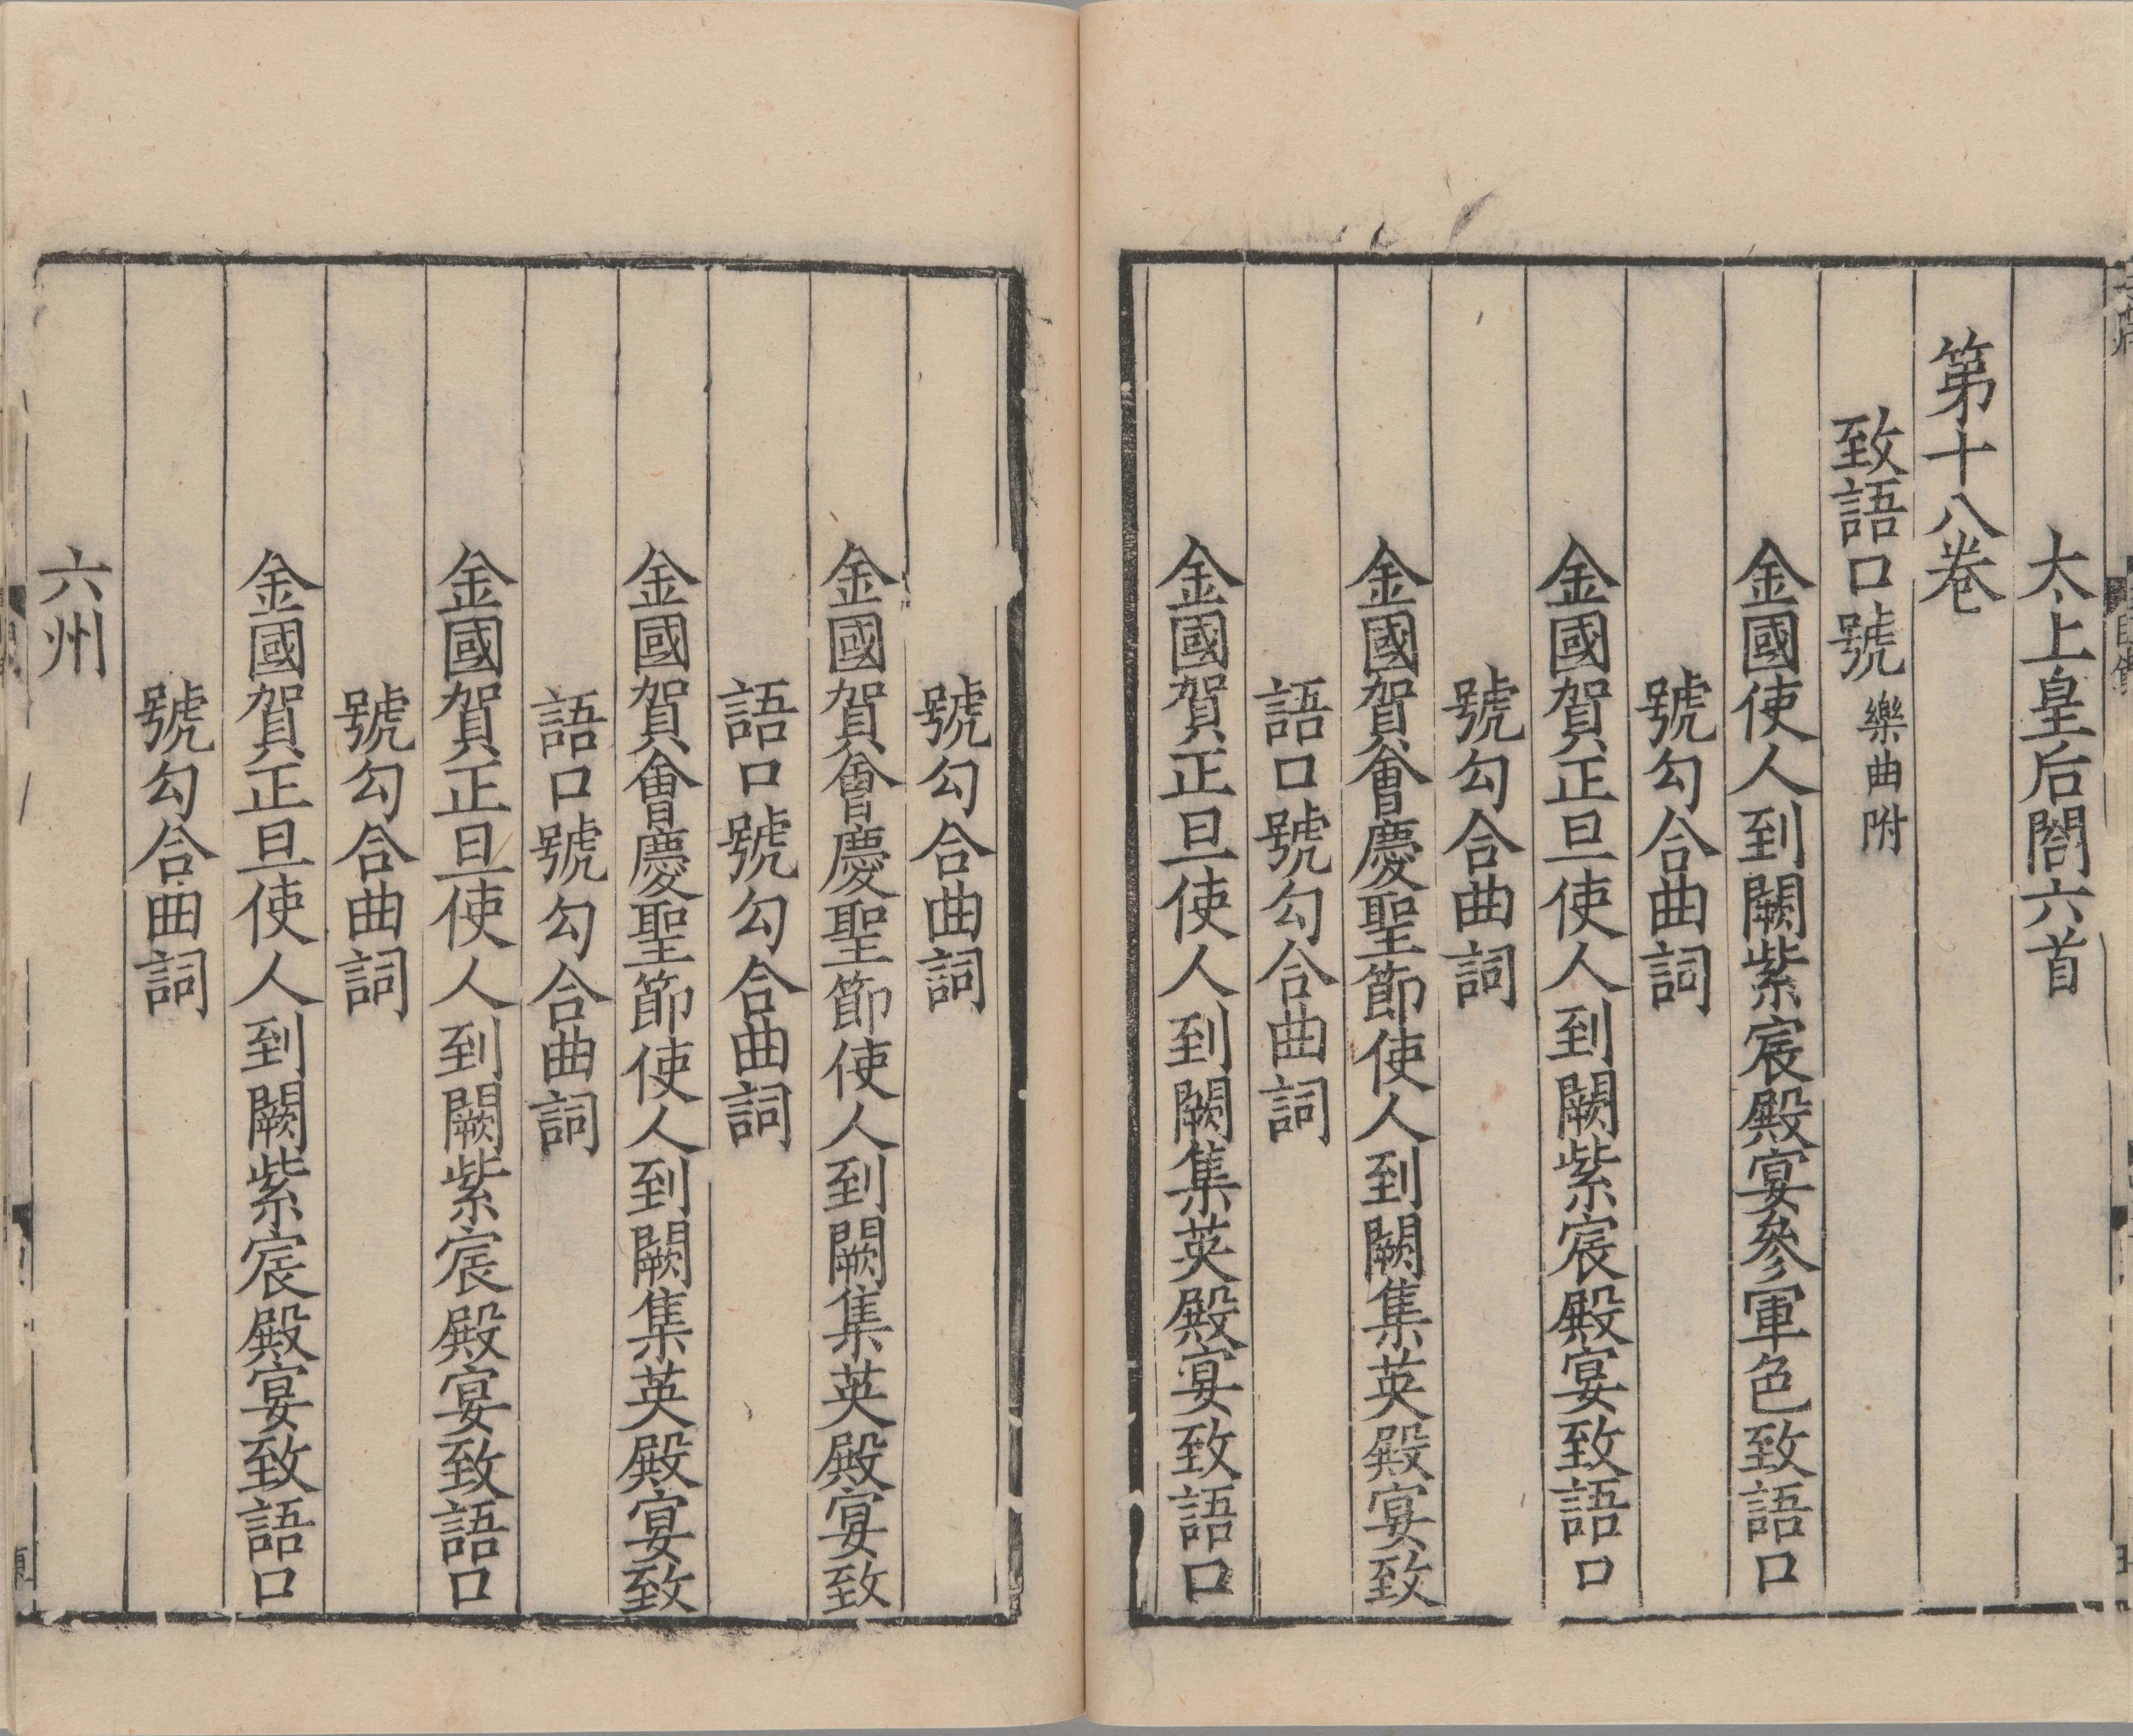 太上皇后閤六首
第十八卷
致語口號樂曲附
金國使人到闕紫宸殿宴參軍色致語口
號勾合曲詞
金國賀正旦使人到闕紫宸殿宴致語口
號勾合曲詞
金國賀會慶聖節使人到闕集英殿宴致
語口號勾合曲詞
金國賀正旦使人到闕集英殿宴致語口
號勾合曲詞
金國賀會慶聖節使人到闕集英殿宴致
語口號勾合曲詞
金國賀會慶聖節使人到闕集英殿宴致
語口號勾合曲詞
金國賀正旦使人到闕紫宸殿宴致語口
號勾合曲詞
金國賀正旦使人到闕紫宸殿宴致語口
號勾合曲詞
六州